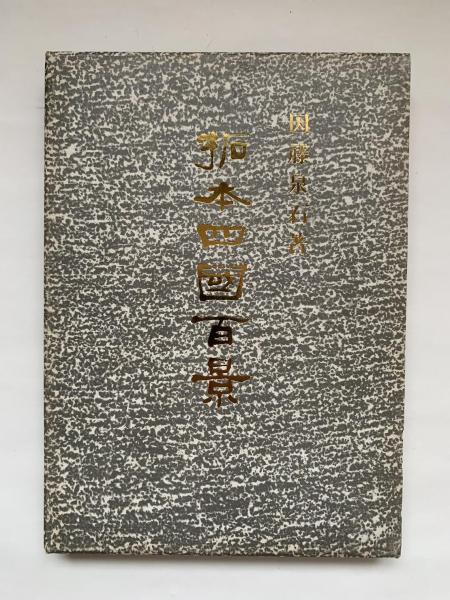 因藤泉石著
拓本四國百景